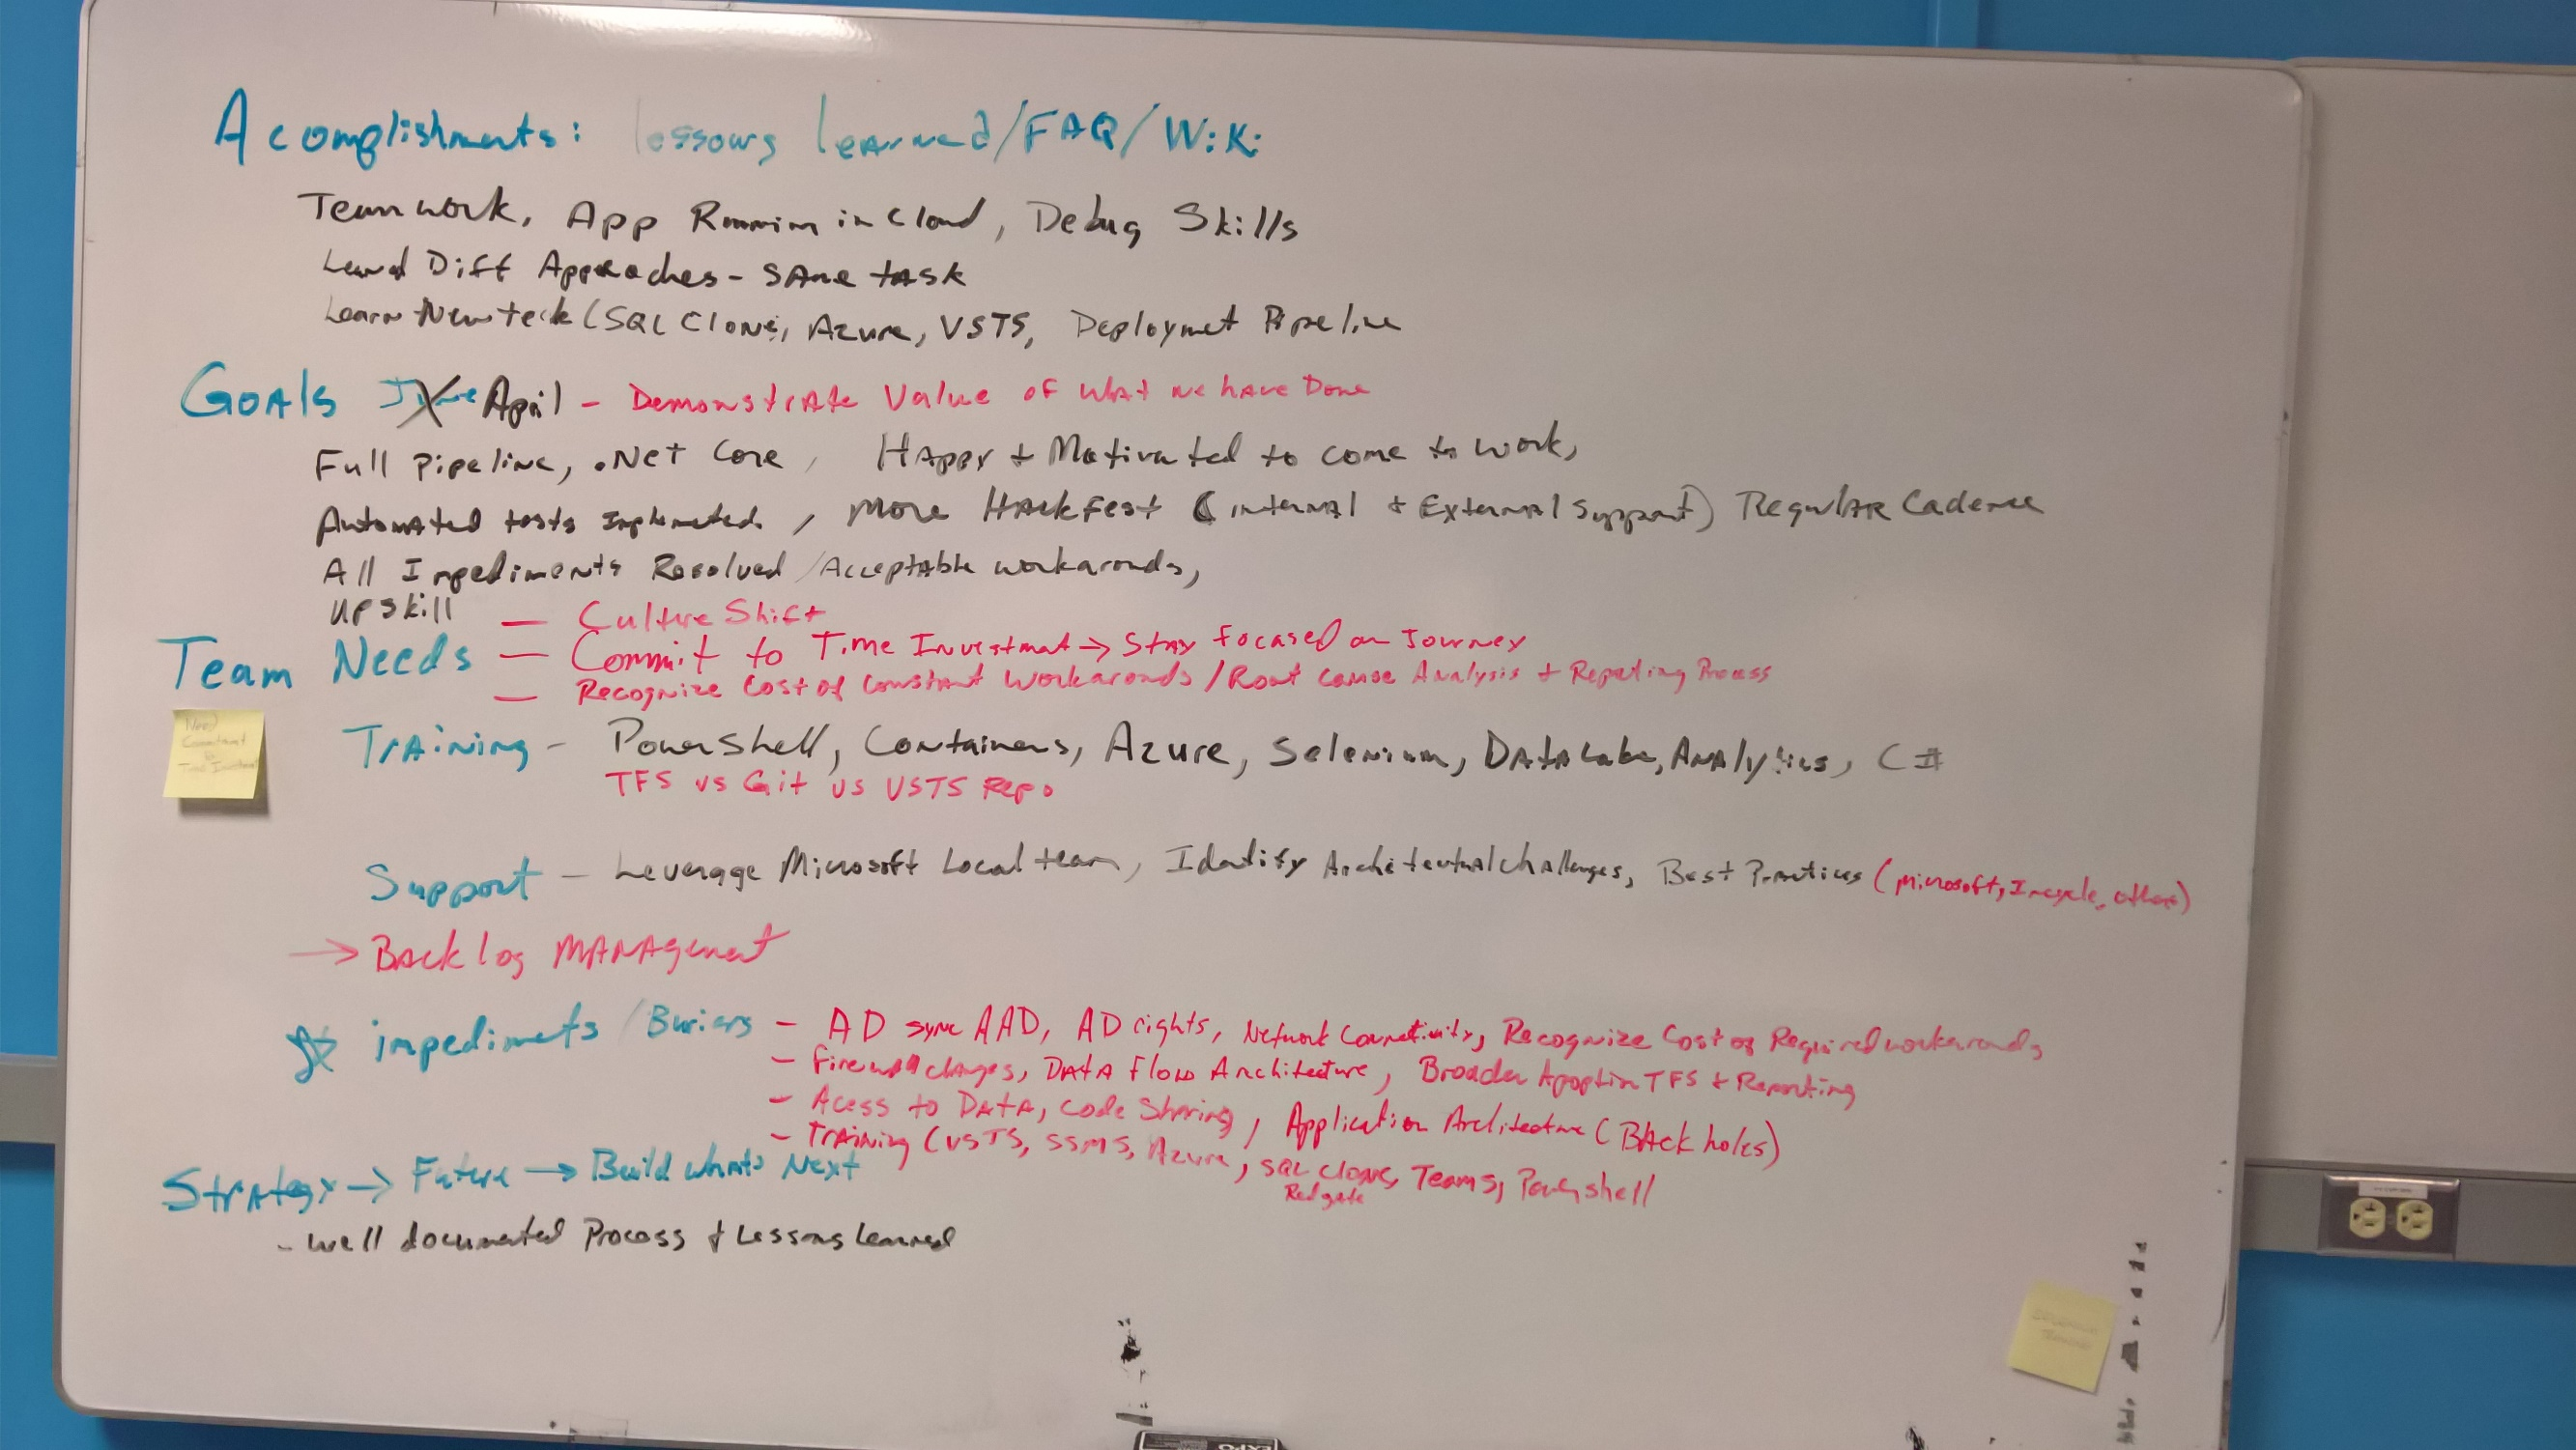 Acomplishments: lessons learned/FAQ/Wiki
Teamwork, App Runnin in Cloud, Debug Skills
Learnd Diff Approaches - SAme tASK
Learn New teck (SQL Clone, Azure, VSTS, Deploymet Pipeline
GoAls June April - DemonstrAte Value of what we hAve Done
Full Pipeline, .Net Core, HAppy + Motivated to come to work,
AutomAted tests Implemeted, More HAckFest (internAl + ExternAl Support) RegulAR Cadence
All Impediments Resolved / AcceptAble workarounds,
UPSkill
- Culture Shift
Team Needs - Commit to Time Investmat → Stay focased on Journey
- Recognize Cost of Constant Workaronds / Root cause Analysis + Reporting Process
Need
Commitment
to
Time Investment
TrAining - PowerShell, Containers, Azure, Selenium, DATA Cube, ANAlytics, C#
TFS vs Git vs VSTS Repo
Support - Leverage Microsoft Local team, Idatify Architectual Challenges, Best Practices (Microsoft, Incycle, others)
→ BAcklog MANAgemet
impedimets / Bariers - AD sync AAD, AD rights, Network Connectivity, Recognize Cost of Required workaronds,
- Firewall changes, DATA Flow Architecture, Broader Adoption TFS + Reporting
- Acess to DATA, Code Sharing, Application Architecture (BlAck holes)
- TrAiNing (VSTS, SSMS, Azure, SQL Clone, Teams, Powershell
Redgate
StrAtegy → Future → Build whats Next
- Well documented Process + Lessons Learned
EXPO